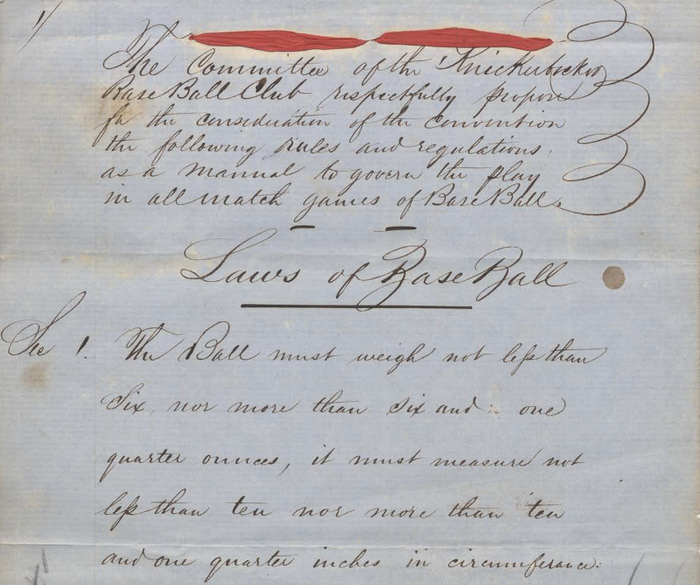 1/
The Committee of the Knickerbocker
Base Ball Club respectfully propose
for the consideration of the convention
the following rules and regulations,
as a manual to govern the play
in all match games of Base Ball.
Laws of Base Ball
Sec 1. The Ball must weigh not less than
six, nor more than six and one
quarter ounces, it must measure not
less than ten nor more than ten
and one quarter inches in circumferance: